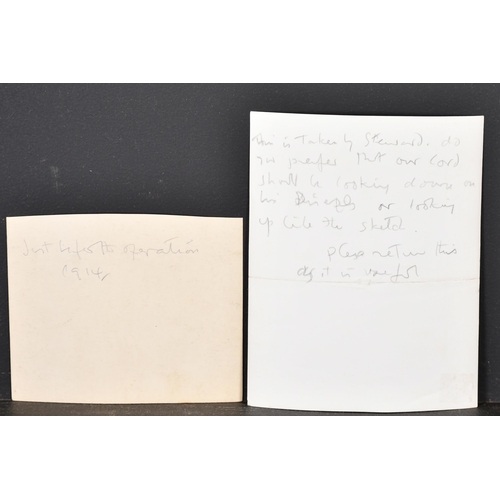 Just before the operation
1914
This is Taken by Steward. do
you prefer that our Lord
should be looking down on
his Disciples or looking
up like the sketch.
please return this
as it is useful